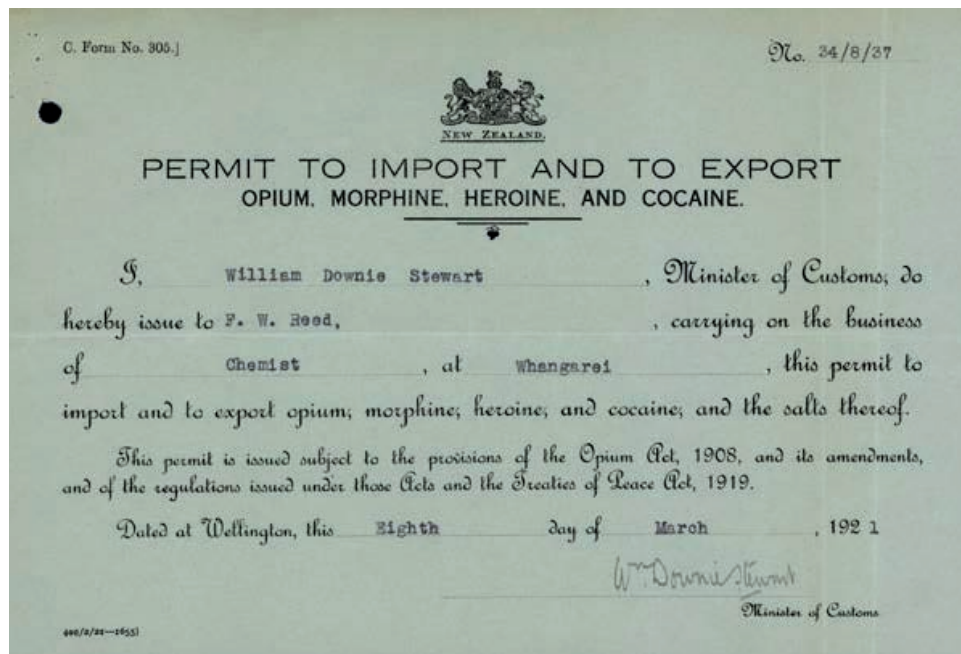 C. Form No. 305.]
No. 34/8/37
NEW ZEALAND.
PERMIT TO IMPORT AND TO EXPORT
OPIUM, MORPHINE, HEROINE, AND COCAINE.
I, William Downie Stewart , Minister of Customs, do
hereby issue to F. W. Reed, , carrying on the business
of Chemist , at Whangarei , this permit to
import and to export opium, morphine, heroine, and cocaine, and the salts thereof.
This permit is issued subject to the provisions of the Opium Act, 1908, and its amendments,
and of the regulations issued under those Acts and the Treaties of Peace Act, 1919.
Dated at Wellington, this Eighth day of March , 1921
Wm Downie Stewart
Minister of Customs